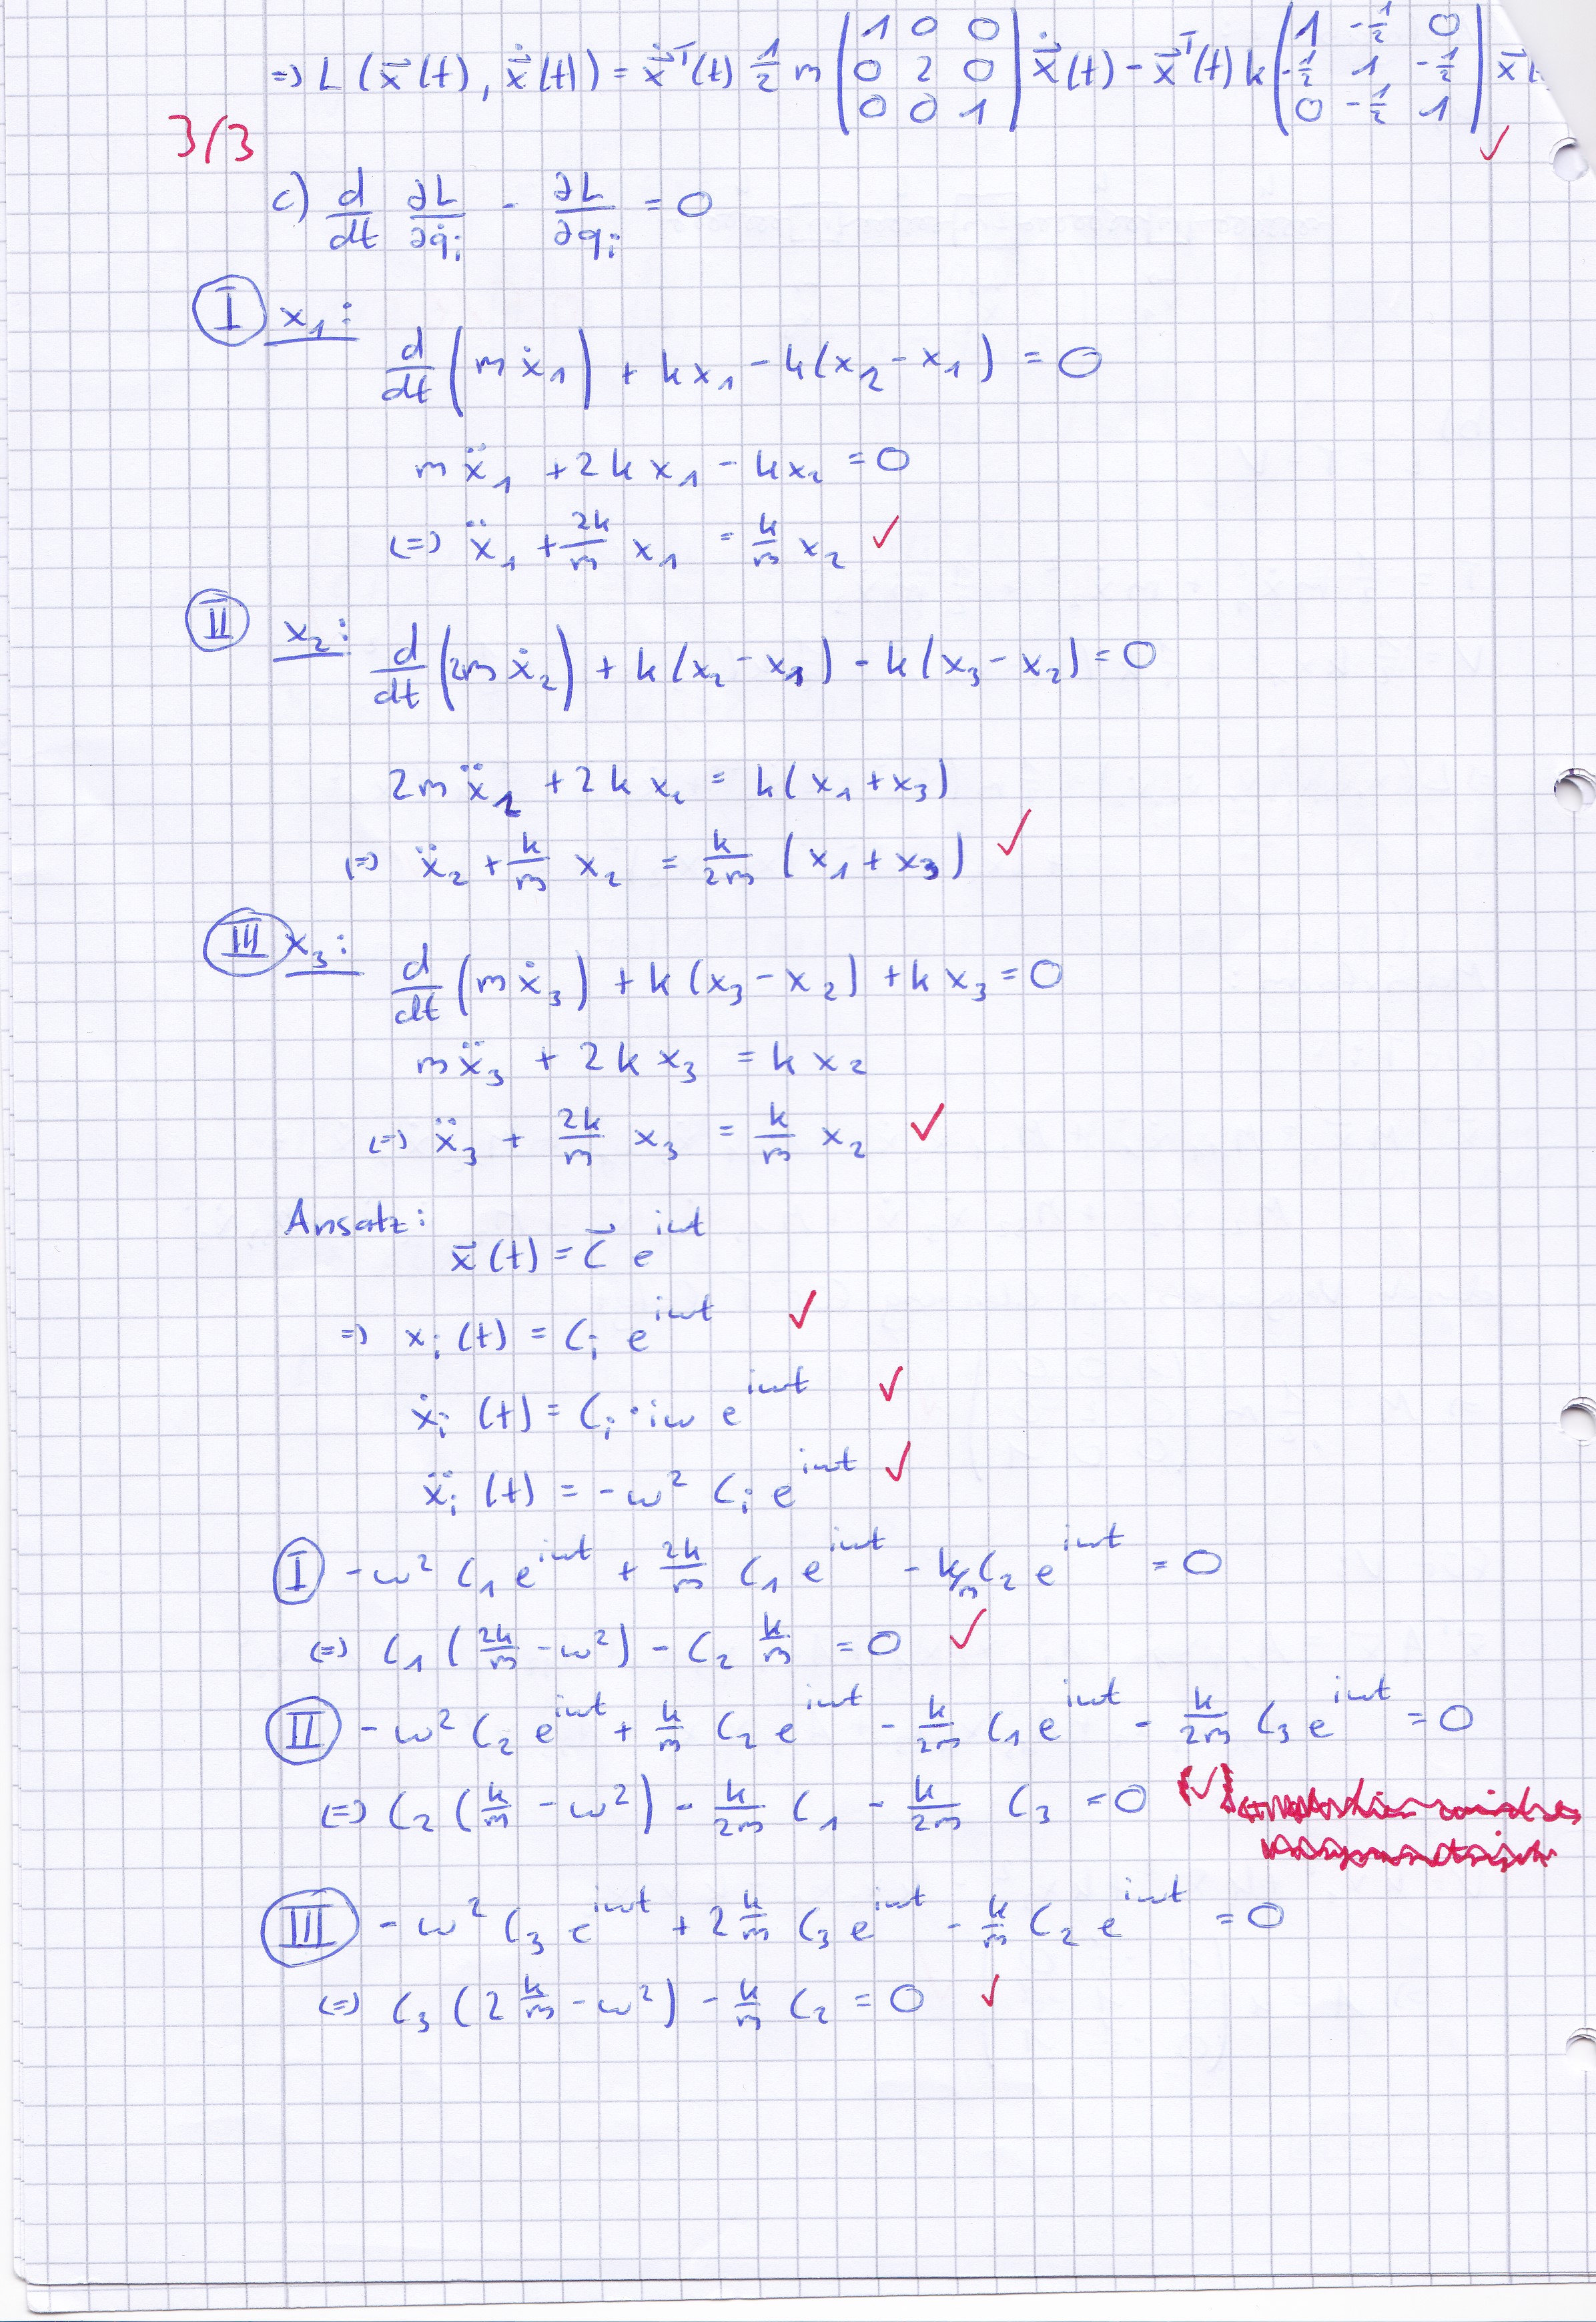 => L (x⃗(t), ẋ⃗(t)) = ẋ⃗ᵀ(t) 1/2 m (1 0 0; 0 2 0; 0 0 1) ẋ⃗(t) - x⃗ᵀ(t) k (1 -1/2 0; -1/2 1 -1/2; 0 -1/2 1) x⃗(
✓
3/3
c) d/dt ∂L/∂q̇ᵢ - ∂L/∂qᵢ = 0
I x₁:
d/dt (m ẋ₁) + k x₁ - k(x₂ - x₁) = 0
m ẍ₁ + 2 k x₁ - k x₂ = 0
(=) ẍ₁ + 2k/m x₁ = k/m x₂ ✓
II x₂: d/dt (2m ẋ₂) + k(x₂ - x₁) - k(x₃ - x₂) = 0
2m ẍ₂ + 2 k x₂ = k(x₁ + x₃)
(=) ẍ₂ + k/m x₂ = k/2m (x₁ + x₃) ✓
III x₃: d/dt (m ẋ₃) + k (x₃ - x₂) + k x₃ = 0
m ẍ₃ + 2 k x₃ = k x₂
(=) ẍ₃ + 2k/m x₃ = k/m x₂ ✓
Ansatz:
x⃗(t) = C⃗ e^iωt
=) xᵢ (t) = Cᵢ e^iωt ✓
ẋᵢ (t) = Cᵢ · iω e^iωt ✓
ẍᵢ (t) = -ω² Cᵢ e^iωt ✓
I -ω² C₁ e^iωt + 2k/m C₁ e^iωt - k/m C₂ e^iωt = 0
(=) C₁ (2k/m - ω²) - C₂ k/m = 0 ✓
II -ω² C₂ e^iωt + k/m C₂ e^iωt - k/2m C₁ e^iωt - k/2m C₃ e^iωt = 0
(=) C₂ (k/m - ω²) - k/2m C₁ - k/2m C₃ = 0 (✓)
III -ω² C₃ e^iωt + 2 k/m C₃ e^iωt - k/m C₂ e^iωt = 0
(=) C₃ (2 k/m - ω²) - k/m C₂ = 0 ✓